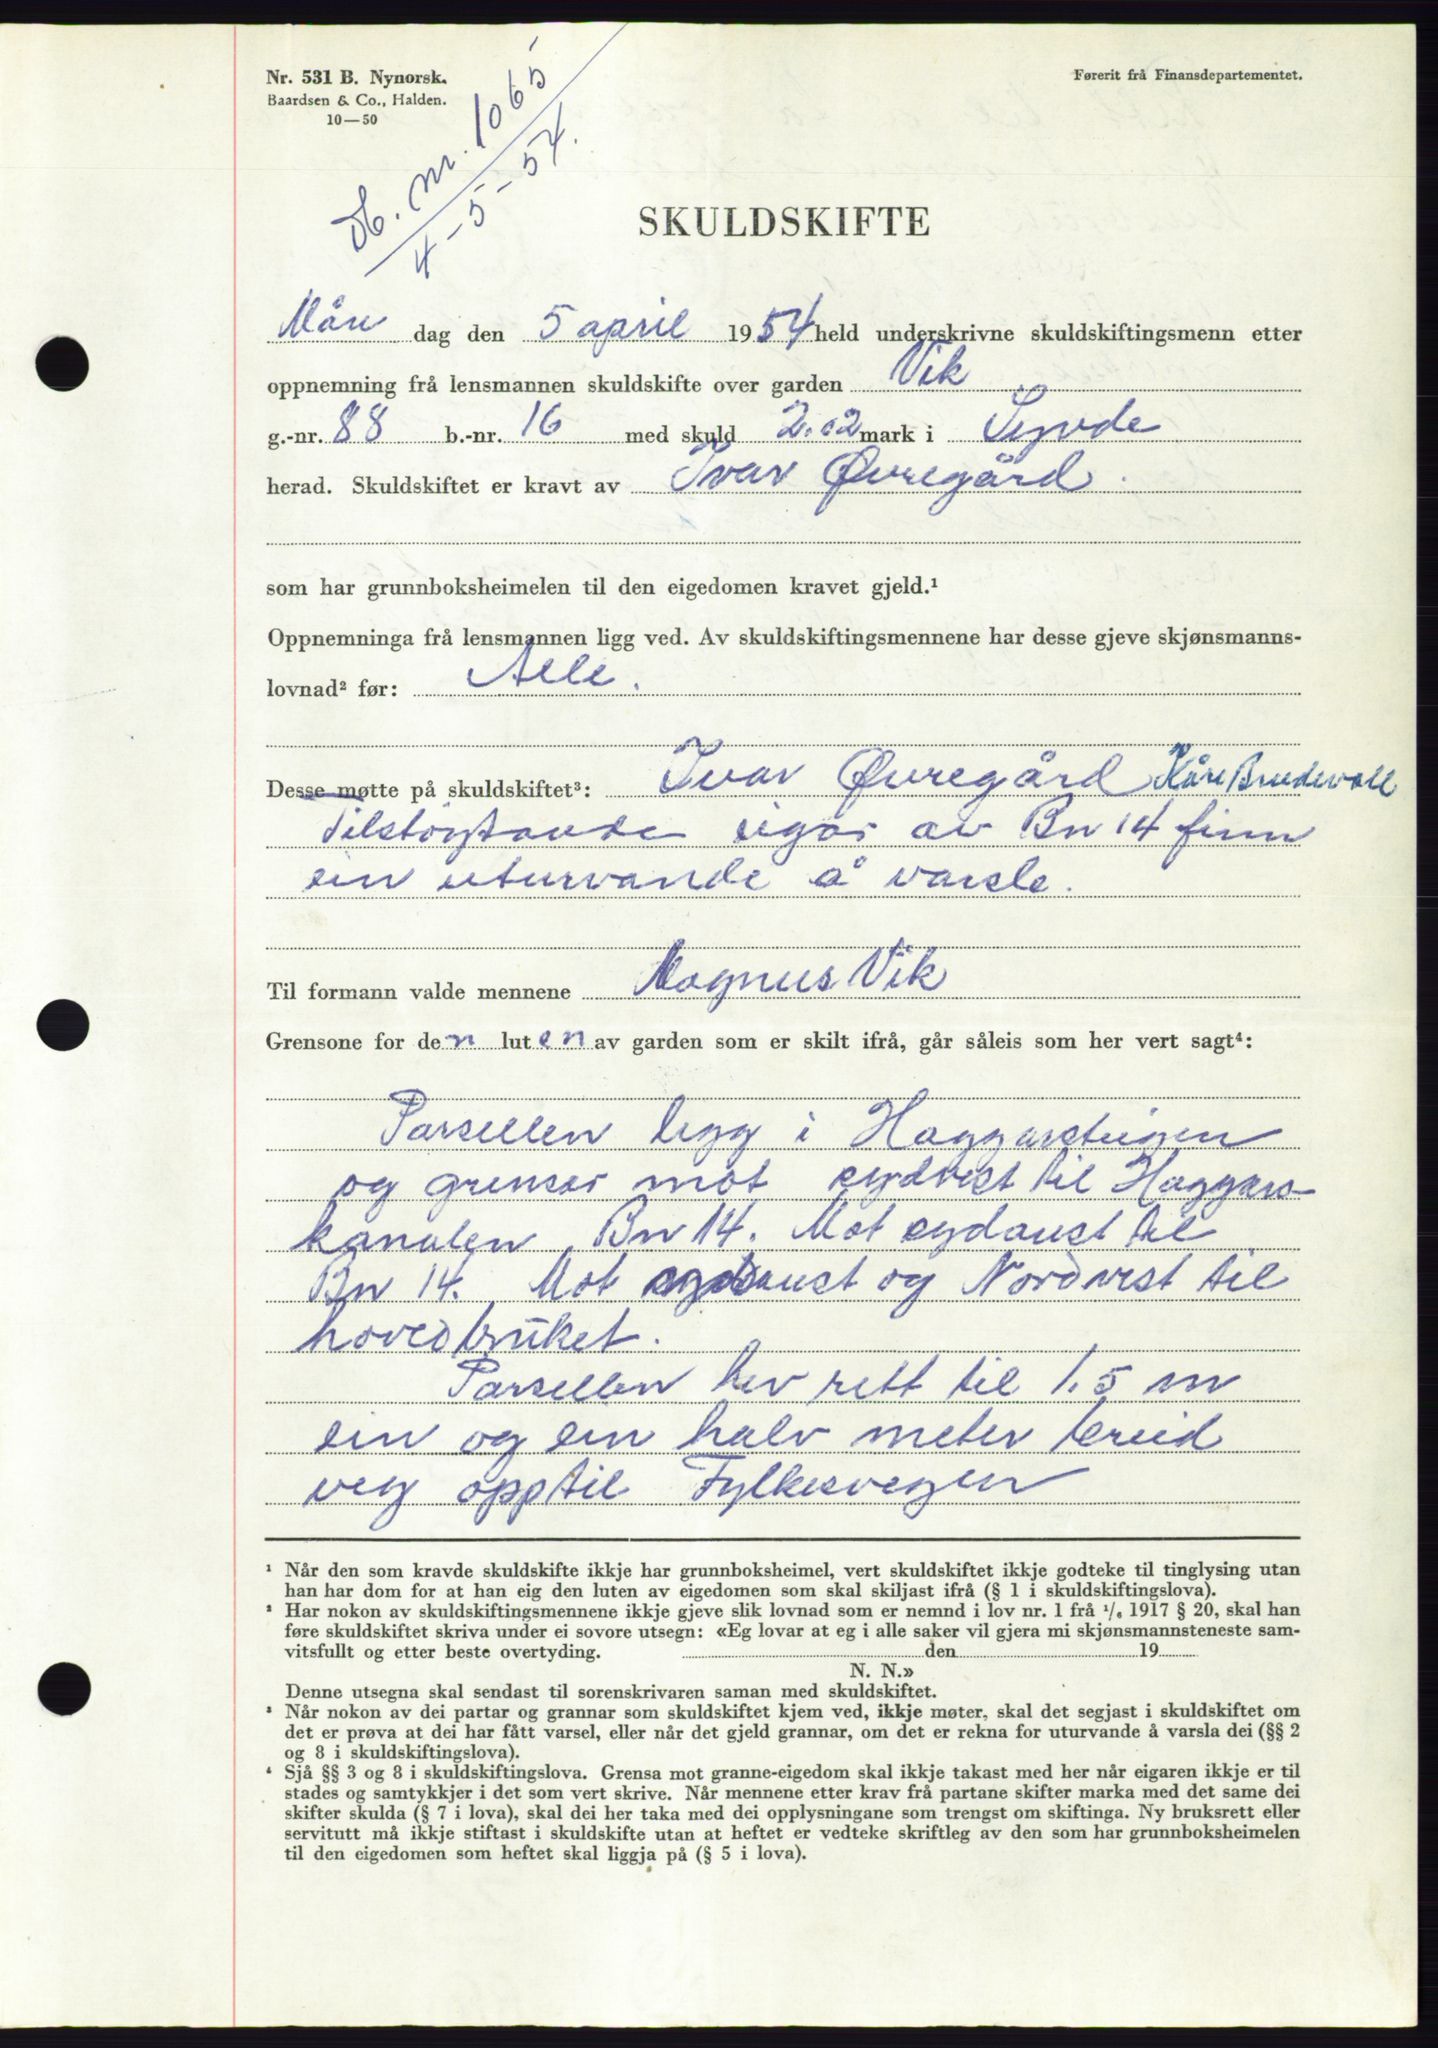 Nr. 531 B. Nynorsk.
Baardsen & Co., Halden.
10—50
Førerit frå Finansdepartementet.
Db. nr. 1065
4-5-54.
SKULDSKIFTE
Mån dag den 5 april 1954 held underskrivne skuldskiftingsmenn etter
oppnemning frå lensmannen skuldskifte over garden Vik
g.-nr. 88 b.-nr. 16 med skuld 2.02 mark i Syvde
herad. Skuldskiftet er kravt av Ivar Øvregård.
som har grunnboksheimelen til den eigedomen kravet gjeld.¹
Oppnemninga frå lensmannen ligg ved. Av skuldskiftingsmennene har desse gjeve skjønsmanns-
lovnad² før: Alle.
Desse møtte på skuldskiftet³: Ivar Øvregård Kåre Brudevoll
Tilstøytande eigar av Bn 14 finn
ein uturvande å varsle.
Til formann valde mennene Magnus Vik
Grensone for den luten av garden som er skilt ifrå, går såleis som her vert sagt⁴:
Parsellen ligg i Haggarsteigen
og grensar mot sydvest til Haggars-
kanalen Bn 14. Mot sydaust til
Bn 14. Mot aust og Nordvest til
hovedbruket.
Parsellen hev rett til 1.5 m
ein og ein halv meter breid
veg opp til Fylkesvegen
¹ Når den som kravde skuldskifte ikkje har grunnboksheimel, vert skuldskiftet ikkje godteke til tinglysing utan
han har dom for at han eig den luten av eigedomen som skal skiljast ifrå (§ 1 i skuldskiftingslova).
² Har nokon av skuldskiftingsmennene ikkje gjeve slik lovnad som er nemnd i lov nr. 1 frå ¹/₆ 1917 § 20, skal han
føre skuldskiftet skriva under ei sovore utsegn: «Eg lovar at eg i alle saker vil gjera mi skjønsmannsteneste sam-
vitsfullt og etter beste overtyding. den 19
N. N.»
Denne utsegna skal sendast til sorenskrivaren saman med skuldskiftet.
³ Når nokon av dei partar og grannar som skuldskiftet kjem ved, ikkje møter, skal det segjast i skuldskiftet om
det er prøva at dei har fått varsel, eller når det gjeld grannar, om det er rekna for uturvande å varsla dei (§§ 2
og 8 i skuldskiftingslova).
⁴ Sjå §§ 3 og 8 i skuldskiftingslova. Grensa mot granne-eigedom skal ikkje takast med her når eigaren ikkje er til
stades og samtykkjer i det som vert skrive. Når mennene etter krav frå partane skifter marka med det same dei
skifter skulda (§ 7 i lova), skal dei her taka med dei opplysningane som trengst om skiftinga. Ny bruksrett eller
servitutt må ikkje stiftast i skuldskifte utan at heftet er vedteke skriftleg av den som har grunnboksheimelen
til den eigedomen som heftet skal liggja på (§ 5 i lova).